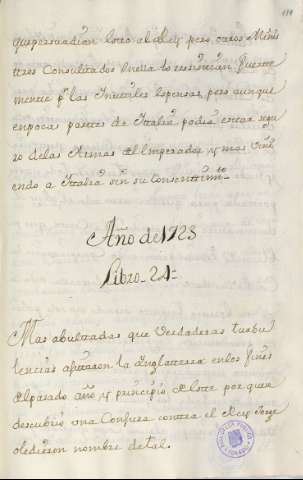 que persuadian loco al del Rey pero otros Minis
tros Consultados en ella lo resistieron fuerte
mente pr las Inutiles Espensas, pero aunque
en pocas partes de Ittalia podia estar segu
ro de las Armas del Emperador, y mas vini
endo a Ittalia sin su Consentimto
Año de 1723
Libro 24=
Mas abultadas que Verdaderas turbu
lencias afixaron la Ynglaterra en los fines
del pasado año y principio de este por que se
descubrio una Confura contra el Rey Jorge
o le dieron nombre de tal.